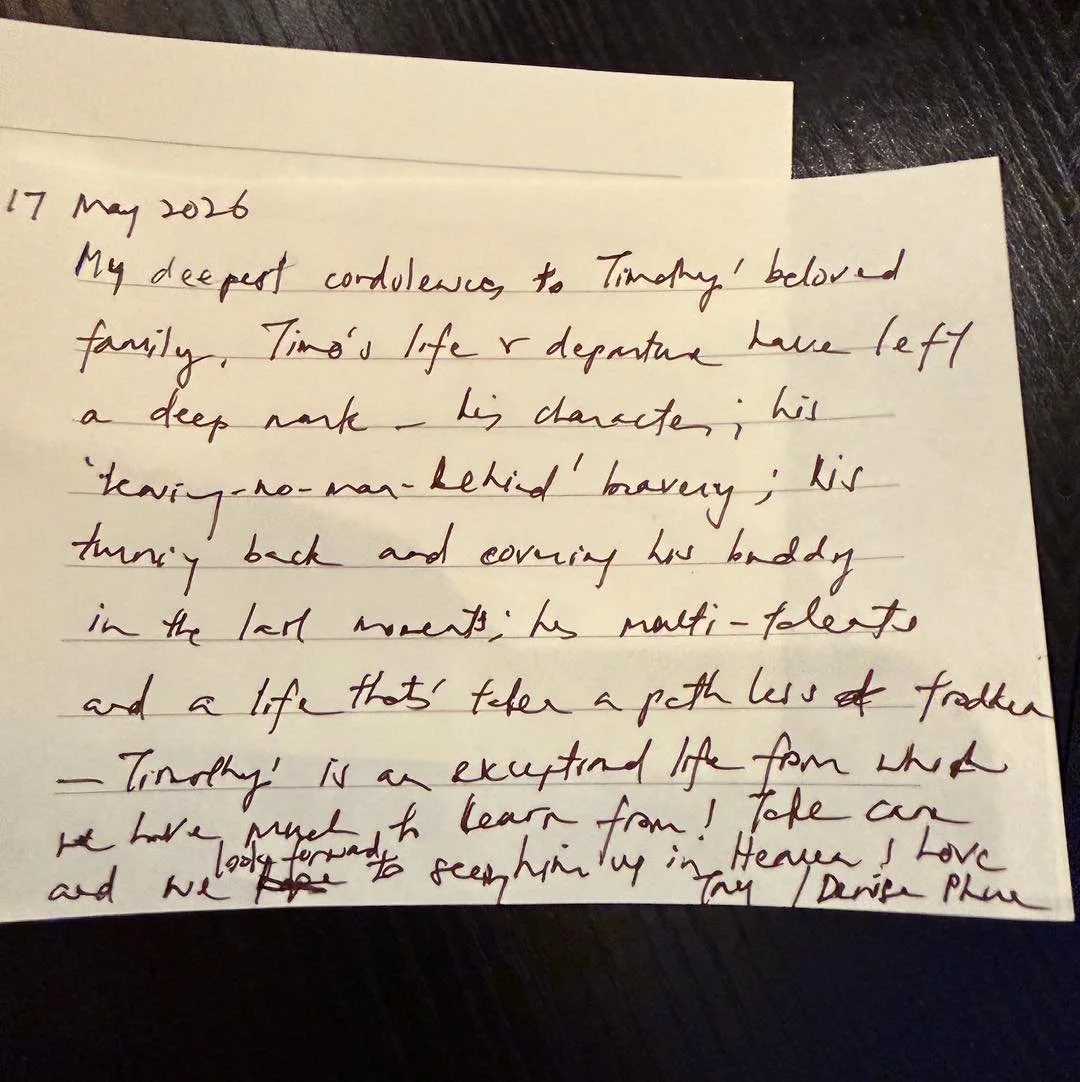 17 May 2026
My deepest condolences to Timothy' beloved
family. Timo's life & departure have left
a deep mark - his character; his
'leaving-no-man-behind' bravery; his
turning back and covering his buddy
in the last moments; his multi-talents
and a life that's taken a path less trodden
- Timothy' is an exceptional life from which
we have much to learn from! Take care
and we look forward to seeing him up in Heaven! Love
/ Denise